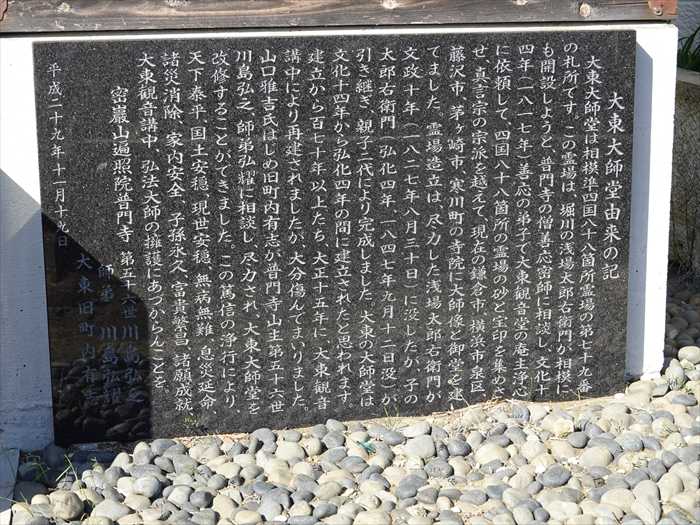 大東大師堂由来の記
大東大師堂は相模準四国八十八箇所霊場の第七十九番
の札所です。この霊場は、堀川の浅場太郎右衛門が相模に
も開設しようと、普門寺の僧善応密師に相談し、文化十
四年(一八一七年)善応の弟子で大東観音堂の庵主浄心
に依頼して、四国八十八箇所の霊場の砂と宝印を集めさ
せ、真言宗の宗派を越えて、現在の鎌倉市、横浜市泉区、
藤沢市、茅ヶ崎市、寒川町の寺院に大師像と御堂を建
てました。霊場造立は、尽力した浅場太郎右衛門が
文政十年(一八二七年八月三十日)に没したが、子の
太郎右衛門(弘化四年、一八四七年九月十二日没)が
引き継ぎ、親子二代により完成しました。大東の大師堂は
文化十四年から弘化四年の間に建立されたと思われます。
建立から百七十年以上たち、大正十五年に、大東観音
講中により再建されましたが、大分傷んでまいりました。
山口雅吉氏はじめ旧町内有志が普門寺山主第五十六世
川島弘之、師弟弘耀に相談し、尽力され、大東大師堂を
改修することができました。この篤信の浄行により、
天下泰平、国土安穏、現世安穏、無病無難、息災延命、
諸災消除、家内安全、子孫永久、富貴繁昌、諸願成就
大東観音講中、弘法大師の擁護にあづからんことを。
密巖山遍照院普門寺 第五十六世川島弘之
師弟 川島弘耀
平成二十九年十一月十九日 大東旧町内有志